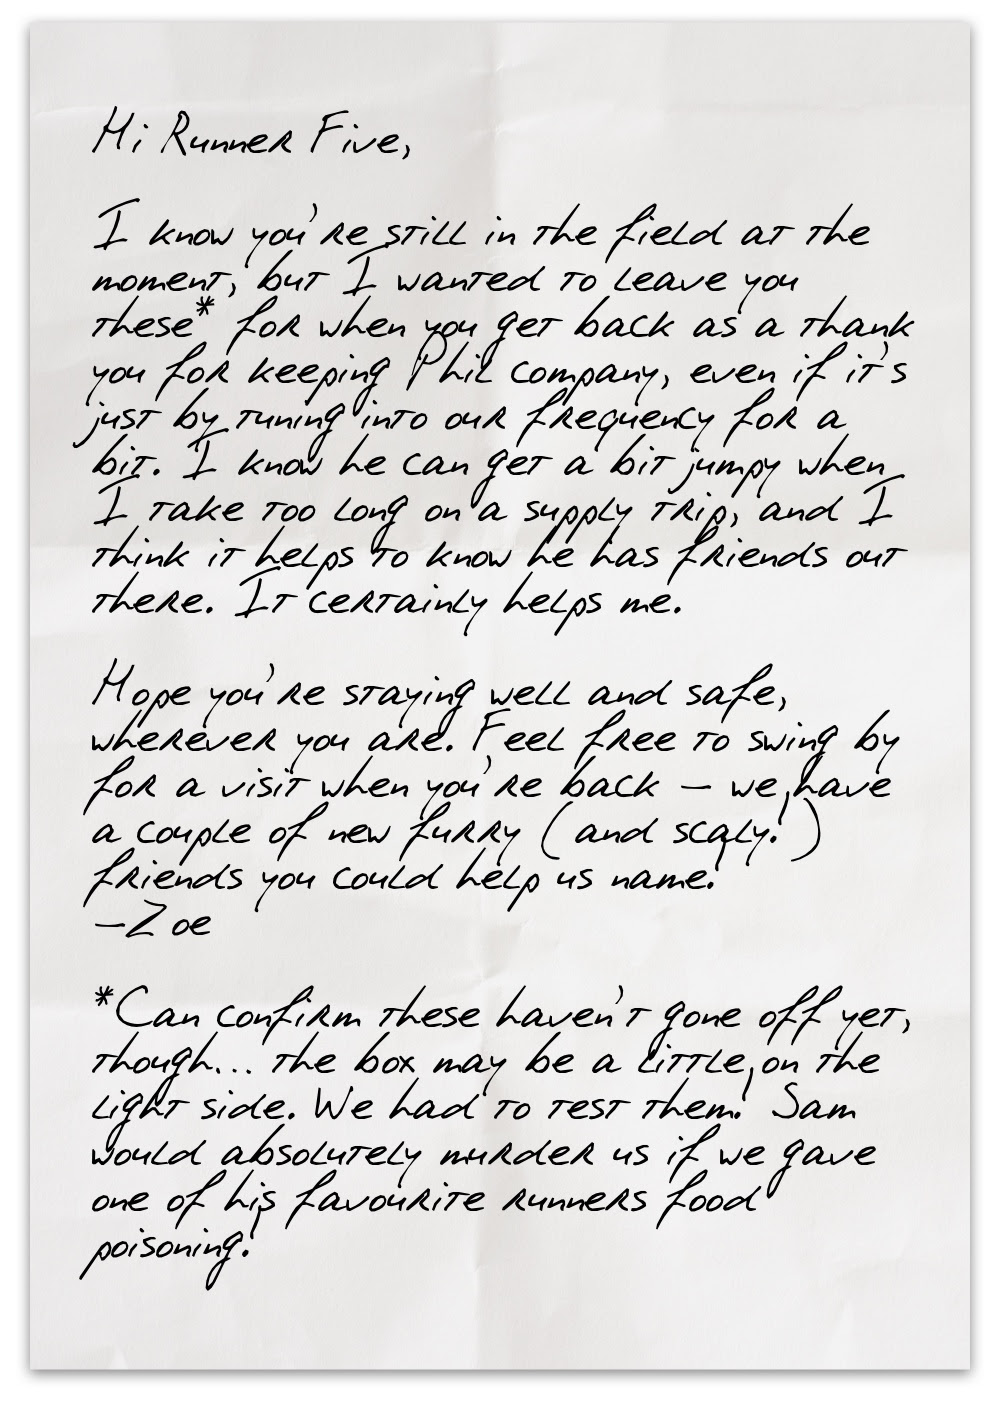 Hi Runner Five,
I know you're still in the field at the
moment, but I wanted to leave you
these* for when you get back as a thank
you for keeping Phil company, even if it's
just by tuning into our frequency for a
bit. I know he can get a bit jumpy when
I take too long on a supply trip, and I
think it helps to know he has friends out
there. It certainly helps me.
Hope you're staying well and safe,
wherever you are. Feel free to swing by
for a visit when you're back – we have
a couple of new furry (and scaly!)
friends you could help us name.
–Zoe
*Can confirm these haven't gone off yet,
though... the box may be a little on the
light side. We had to test them! Sam
would absolutely murder us if we gave
one of his favourite runners food
poisoning!